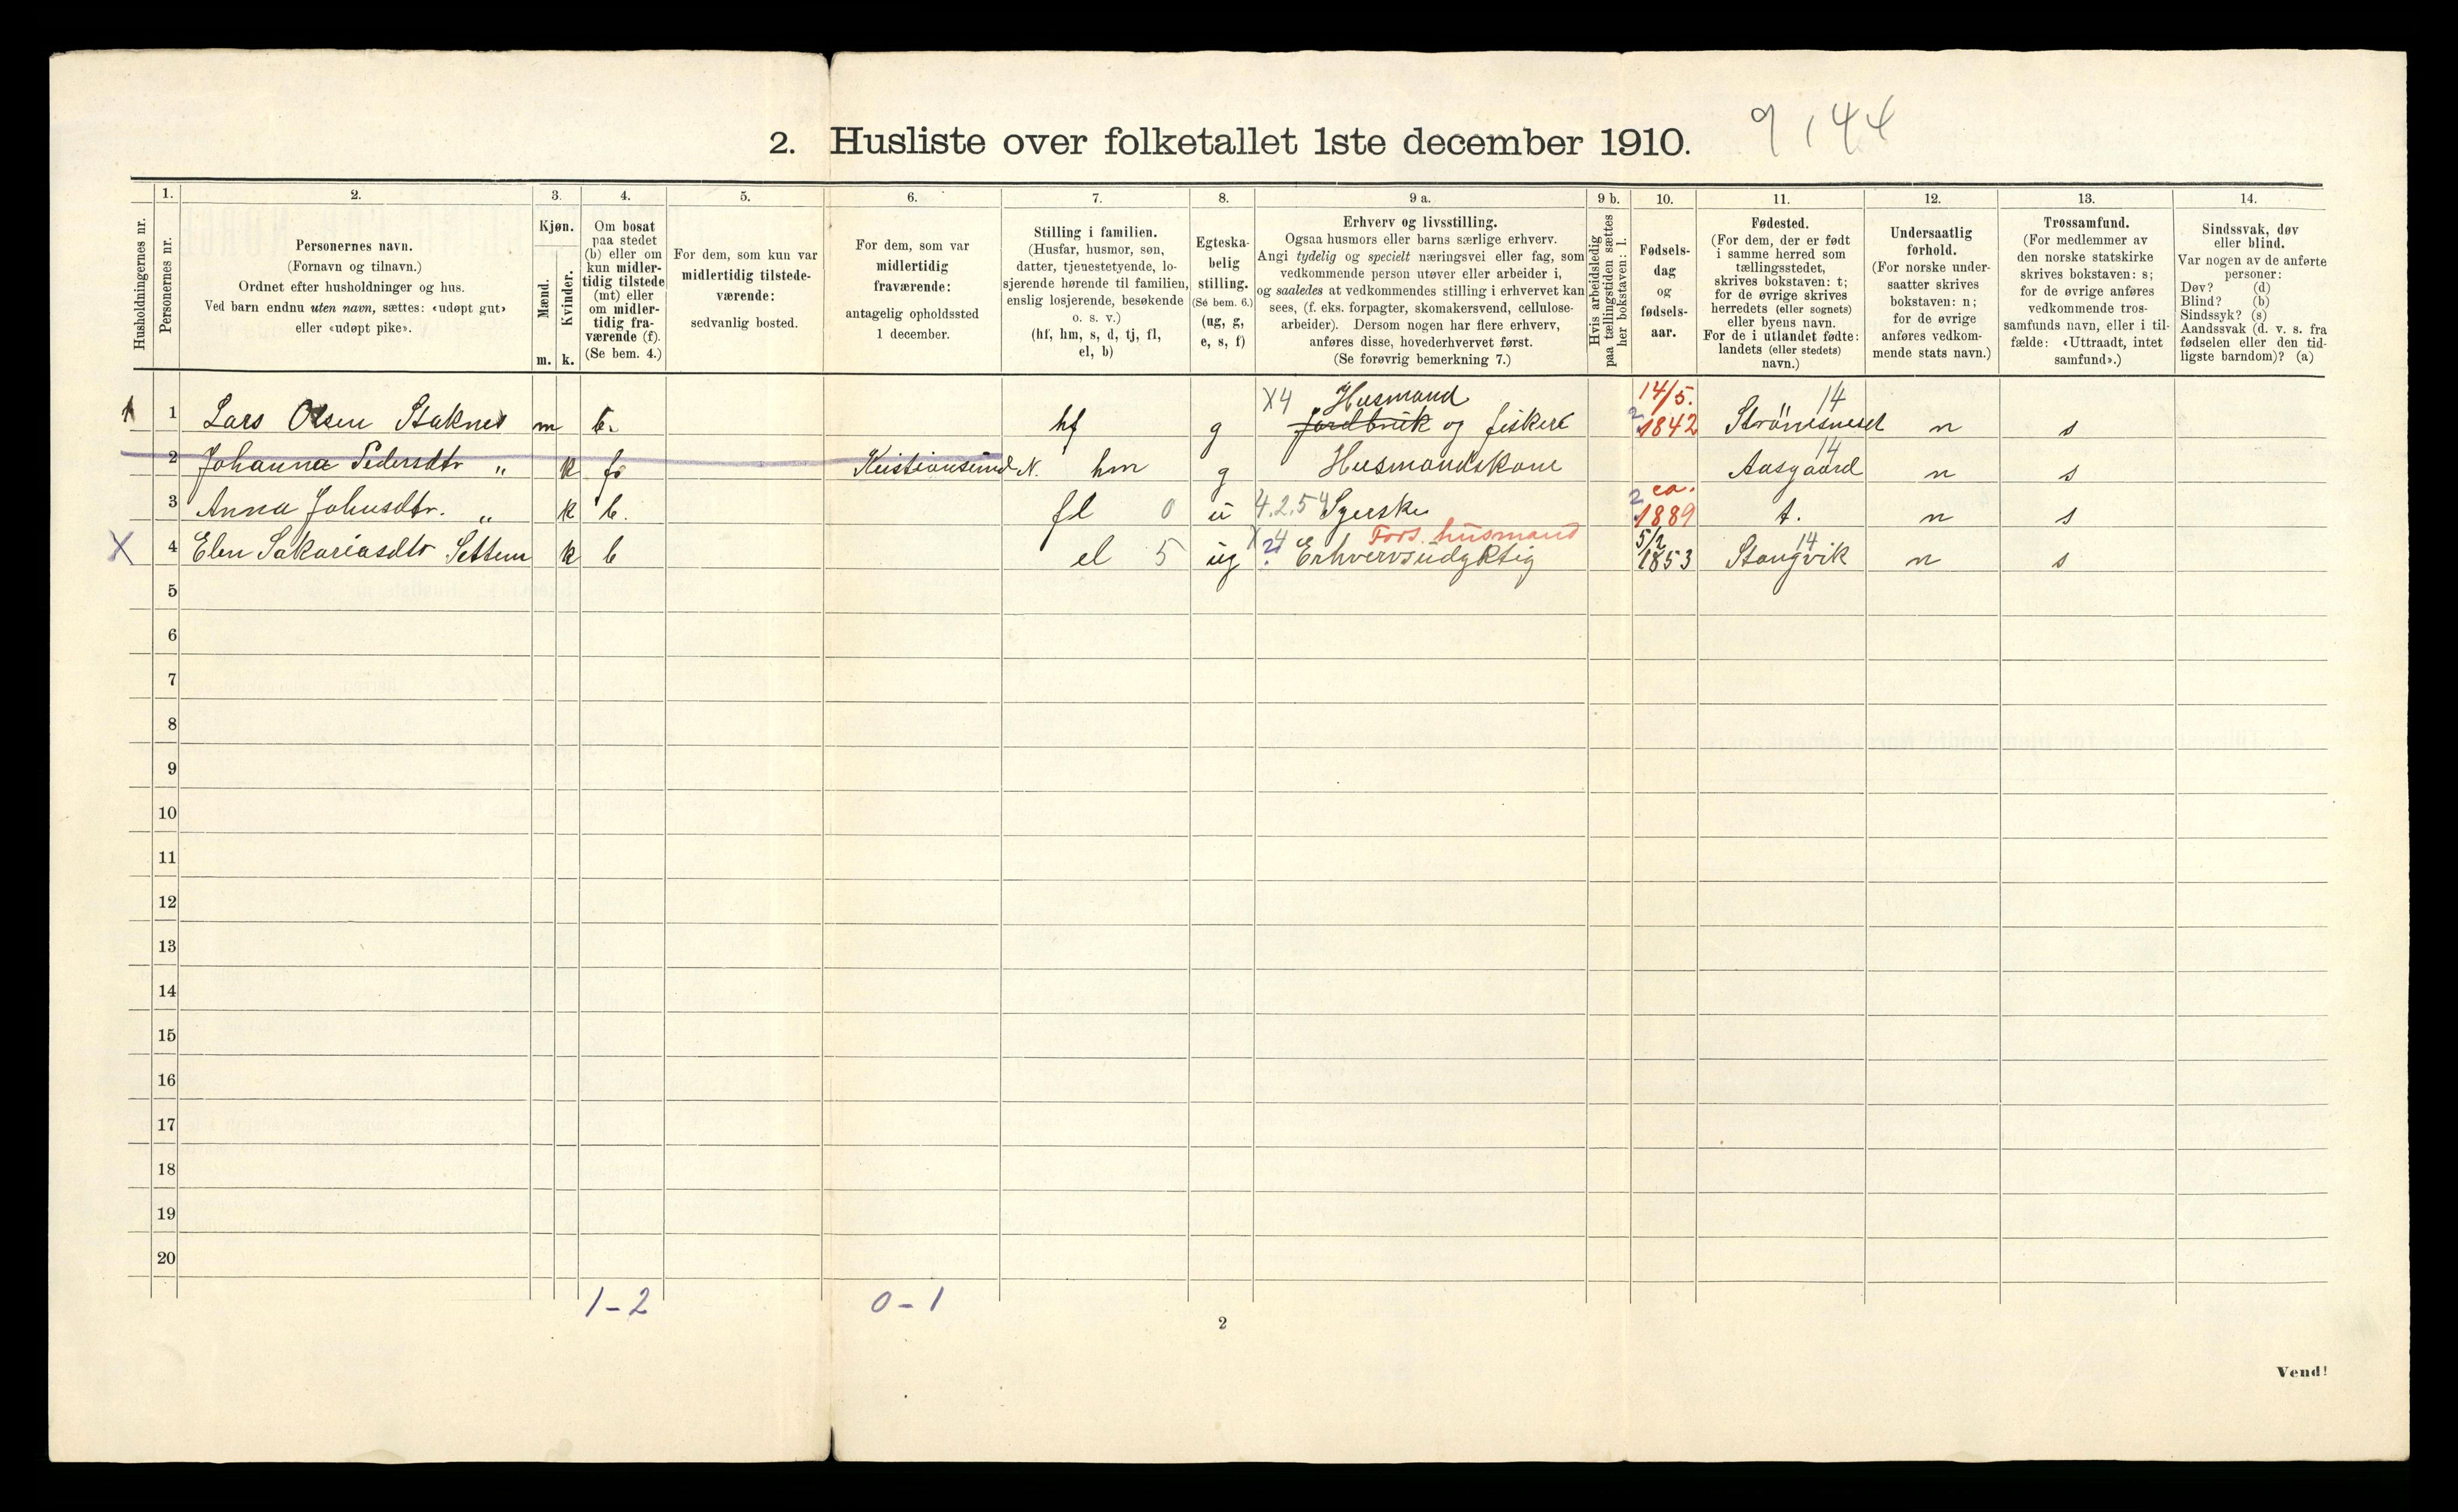 2. Husliste over folketallet 1ste december 1910. 9 , 44
Husholdningernes nr.
1. Personernes nr.
2. Personernes navn. (Fornavn og tilnavn.) Ordnet efter husholdninger og hus. Ved barn endnu uten navn, sættes: «udøpt gut» eller «udøpt pike».
3. Kjøn. Mænd. m. Kvinder. k.
4. Om bosat paa stedet (b) eller om kun midlertidig tilstede (mt) eller om midlertidig fraværende (f). (Se bem. 4.)
5. For dem, som kun var midlertidig tilstedeværende: sedvanlig bosted.
6. For dem, som var midlertidig fraværende: antagelig opholdssted 1 december.
7. Stilling i familien. (Husfar, husmor, søn, datter, tjenestetyende, losjerende hørende til familien, enslig losjerende, besøkende o. s. v.) (hf, hm, s, d, tj, fl, el, b)
8. Egteskabelig stilling. (Se bem. 6.) (ug, g, e, s, f)
9 a. Erhverv og livsstilling. Ogsaa husmors eller barns særlige erhverv. Angi tydelig og specielt næringsvei eller fag, som vedkommende person utøver eller arbeider i, og saaledes at vedkommendes stilling i erhvervet kan sees, (f. eks. forpagter, skomakersvend, cellulosearbeider). Dersom nogen har flere erhverv, anføres disse, hovederhvervet først. (Se forøvrig bemerkning 7.)
9 b. Hvis arbeidsledig paa tællingstiden sættes her bokstaven: l.
10. Fødselsdag og fødselsaar.
11. Fødested. (For dem, der er født i samme herred som tællingsstedet, skrives bokstaven: t; for de øvrige skrives herredets (eller sognets) eller byens navn. For de i utlandet fødte: landets (eller stedets) navn.)
12. Undersaatlig forhold. (For norske undersaatter skrives bokstaven: n; for de øvrige anføres vedkommende stats navn.)
13. Trossamfund. (For medlemmer av den norske statskirke skrives bokstaven: s; for de øvrige anføres vedkommende trossamfunds navn, eller i tilfælde: «Uttraadt, intet samfund».)
14. Sindssvak, døv eller blind. Var nogen av de anførte personer: Døv? (d) Blind? (b) Sindssyk? (s) Aandssvak (d. v. s. fra fødselen eller den tidligste barndom)? (a)
1 1 Lars Olsen Staknes m b. hf g X4 Husmand Jordbruk og fisker 14/5. 2 1842 Strömsneset 14 n s
2 Johanna Pedersdtr " k f Kristiansund N. hm g Husmandskone Aasgaard 14 n s
3 Anna Johnsdtr. " k b. fl 0 u 4.2.5 4 Syerske 2 ca. 1889 t. n s
X 4 Elen Sakariasdtr Settem k b el 5 ug X4 2 Fors. husmand Erhvervsudygtig 5/2 1853 Stangvik 14 n s
5
6
7
8
9
10
11
12
13
14
15
16
17
18
19
20
1 - 2 0 - 1
2
Vend!